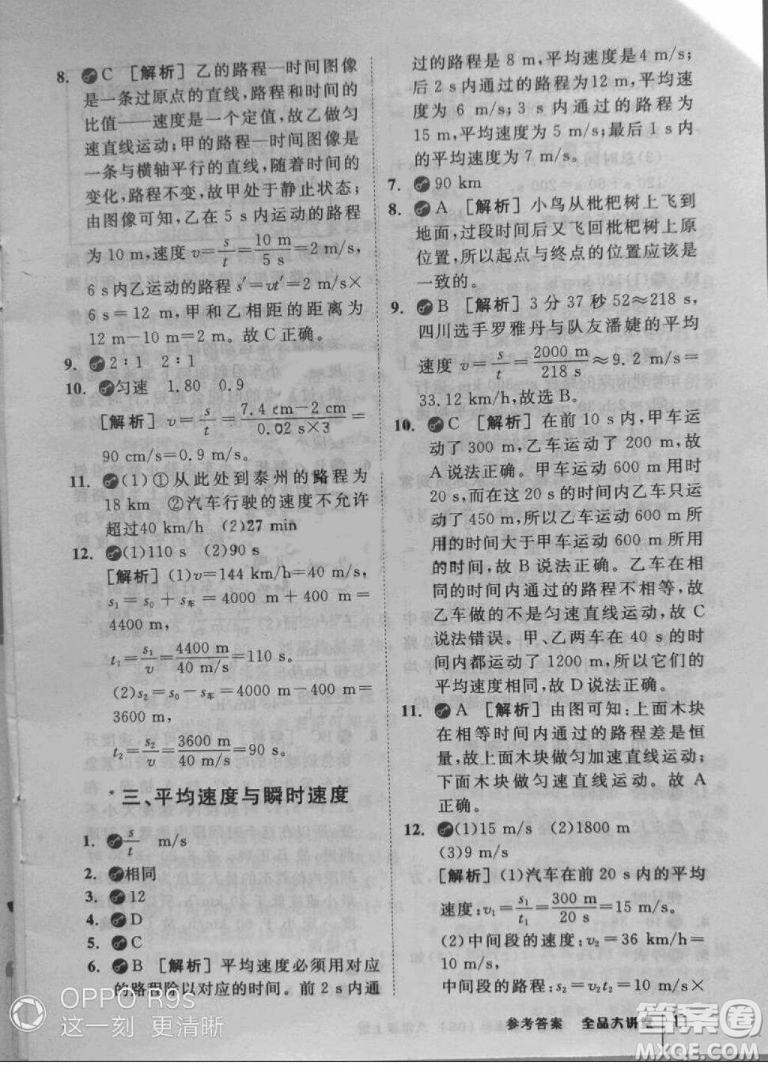 8. C [解析] 乙的路程—时间图像
是一条过原点的直线,路程和时间的
比值——速度是一个定值,故乙做匀
速直线运动;甲的路程—时间图像是
一条与横轴平行的直线,随着时间的
变化,路程不变,故甲处于静止状态;
由图像可知,乙在 5 s 内运动的路程
为 10 m,速度 v=s/t=10 m/5 s=2 m/s,
6 s 内乙运动的路程 s′=vt′=2 m/s×
6 s=12 m,甲和乙相距的距离为
12 m-10 m=2 m。故 C 正确。
9. 2∶1 2∶1
10. 匀速 1.80 0.9
[解析] v=s/t=7.4 cm-2 cm/0.02 s×3=
90 cm/s=0.9 m/s。
11. (1)①从此处到泰州的路程为
18 km ②汽车行驶的速度不允许
超过40 km/h (2)27 min
12. (1)110 s (2)90 s
[解析] (1)v=144 km/h=40 m/s,
s₁=s₀+s车=4000 m+400 m=
4400 m,
t₁=s₁/v=4400 m/40 m/s=110 s。
(2)s₂=s₀-s车=4000 m-400 m=
3600 m,
t₂=s₂/v=3600 m/40 m/s=90 s。
* 三、平均速度与瞬时速度
1. s/t m/s
2. 相同
3. 12
4. D
5. C
6. B [解析] 平均速度必须用对应
的路程除以对应的时间。前 2 s 内通
过的路程是 8 m,平均速度是4 m/s;
后 2 s 内通过的路程为12 m,平均速
度为 6 m/s;3 s 内通过的路程为
15 m,平均速度为 5 m/s;最后 1 s 内
的平均速度为 7 m/s。
7. 90 km
8. A [解析] 小鸟从枇杷树上飞到
地面,过段时间后又飞回枇杷树上原
位置,所以起点与终点的位置应该是
一致的。
9. B [解析] 3 分 37 秒 52≈218 s,
四川选手罗雅丹与队友潘婕的平均
速度 v=s/t=2000 m/218 s≈9.2 m/s=
33.12 km/h,故选 B。
10. C [解析] 在前 10 s 内,甲车运
动了 300 m,乙车运动了 200 m,故
A 说法正确。甲车运动 600 m 用时
20 s,而在这 20 s 的时间内乙车只运
动了 450 m,所以乙车运动 600 m 所
用的时间大于甲车运动 600 m 所用
的时间,故 B 说法正确。乙车在相
同的时间内通过的路程不相等,故
乙车做的不是匀速直线运动,故 C
说法错误。甲、乙两车在 40 s 的时
间内都运动了 1200 m,所以它们的
平均速度相同,故 D 说法正确。
11. A [解析] 由图可知:上面木块
在相等时间内通过的路程差是恒
量,故上面木块做匀加速直线运动;
下面木块做匀速直线运动。故 A
正确。
12. (1)15 m/s (2)1800 m
(3)9 m/s
[解析] (1)汽车在前 20 s 内的平均
速度:v₁=s₁/t₁=300 m/20 s=15 m/s。
(2)中间段的速度:v₂=36 km/h=
10 m/s,
中间段的路程:s₂=v₂t₂=10 m/s×
OPPO R9s
这一刻 更清晰
参考答案 全品大讲堂
答案圈
MXQE.COM